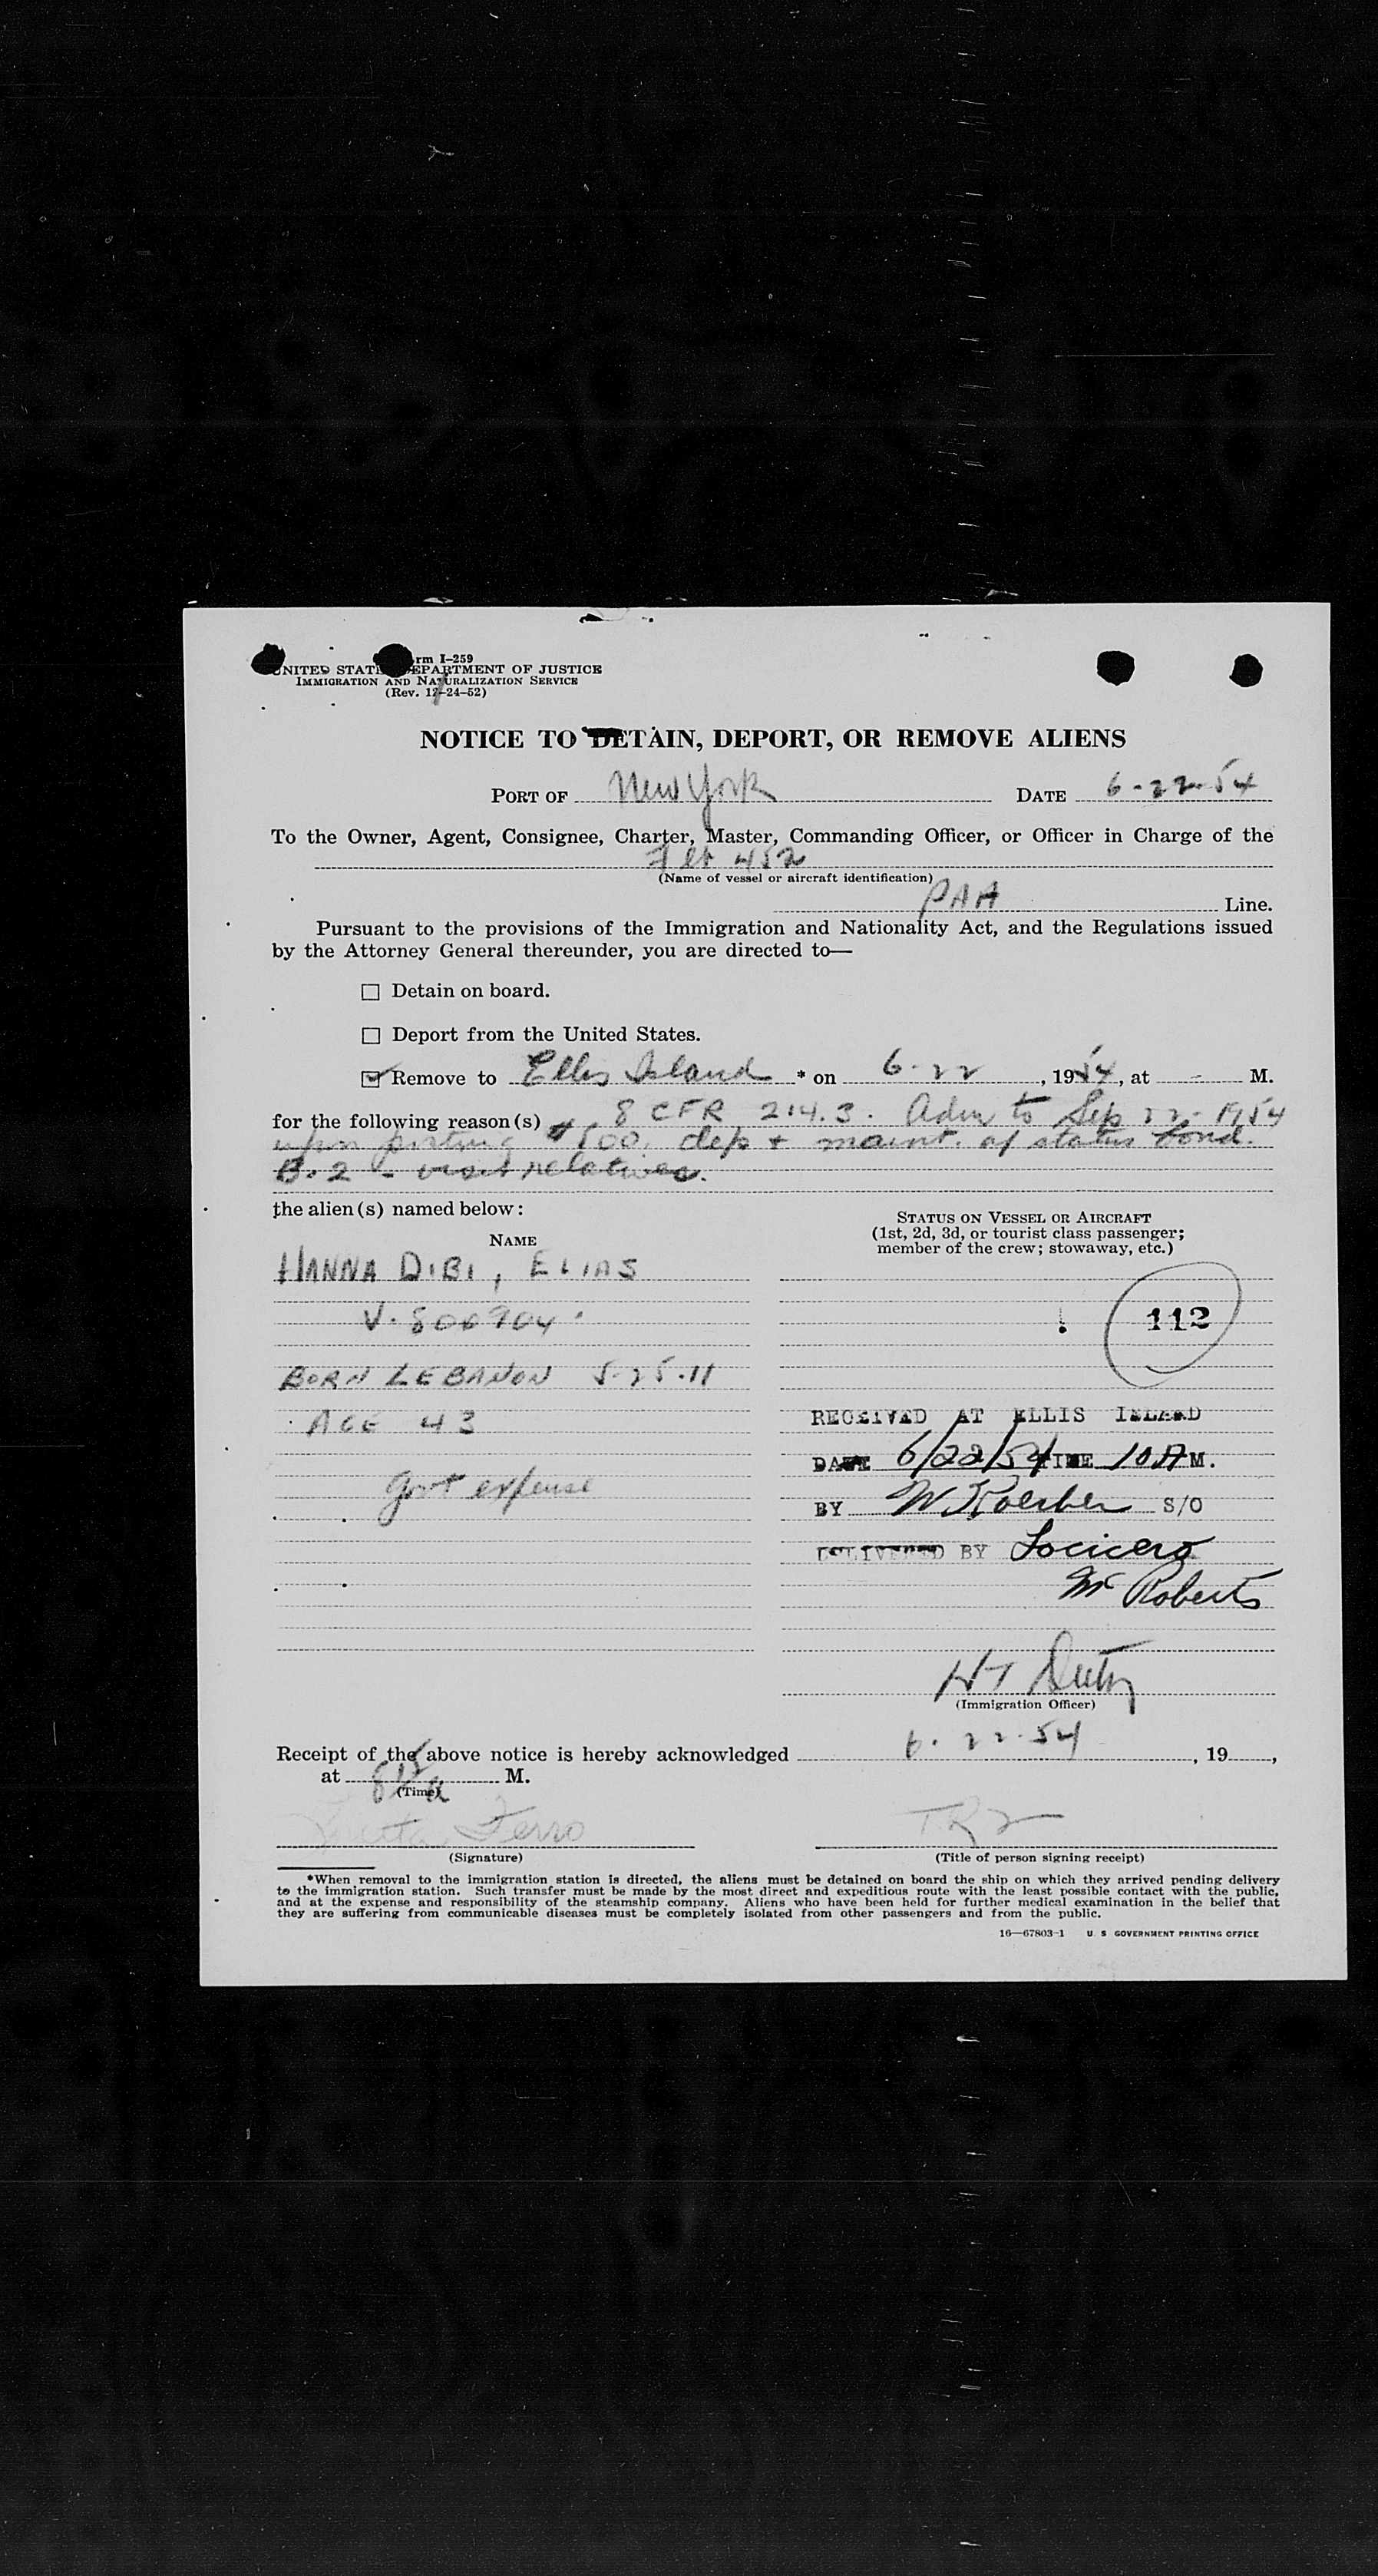 rm I-259
UNITED STATES DEPARTMENT OF JUSTICE
IMMIGRATION AND NATURALIZATION SERVICE
(Rev. 12-24-52)
NOTICE TO DETAIN, DEPORT, OR REMOVE ALIENS
PORT OF New York DATE 6-22-54
To the Owner, Agent, Consignee, Charter, Master, Commanding Officer, or Officer in Charge of the
Flt 452
(Name of vessel or aircraft identification)
PAA Line.
Pursuant to the provisions of the Immigration and Nationality Act, and the Regulations issued
by the Attorney General thereunder, you are directed to—
☐ Detain on board.
☐ Deport from the United States.
☑ Remove to Ellis Island * on 6-22, 1954, at - M.
for the following reason(s) 8 CFR 214.3. Adm to Sep 22-1954
upon posting $500. dep + maint. of status bond.
B-2 - visit relatives.
the alien(s) named below:
STATUS ON VESSEL OR AIRCRAFT
(1st, 2d, 3d, or tourist class passenger;
member of the crew; stowaway, etc.)
NAME
HANNA DIBI, ELIAS
V-800704
112
BORN LEBANON 5-25-11
AGE 43
RECEIVED AT ELLIS ISLAND
DATE 6/22/54 TIME 10 A M.
Govt expense
BY W S/O
DELIVERED BY Locicero
Mr Roberts
HT
(Immigration Officer)
Receipt of the above notice is hereby acknowledged 6-22-54, 19
at 8 a M.
(Time)
Ferro
(Signature)
(Title of person signing receipt)
*When removal to the immigration station is directed, the aliens must be detained on board the ship on which they arrived pending delivery
to the immigration station. Such transfer must be made by the most direct and expeditious route with the least possible contact with the public,
and at the expense and responsibility of the steamship company. Aliens who have been held for further medical examination in the belief that
they are suffering from communicable diseases must be completely isolated from other passengers and from the public.
16—67803-1 U. S. GOVERNMENT PRINTING OFFICE